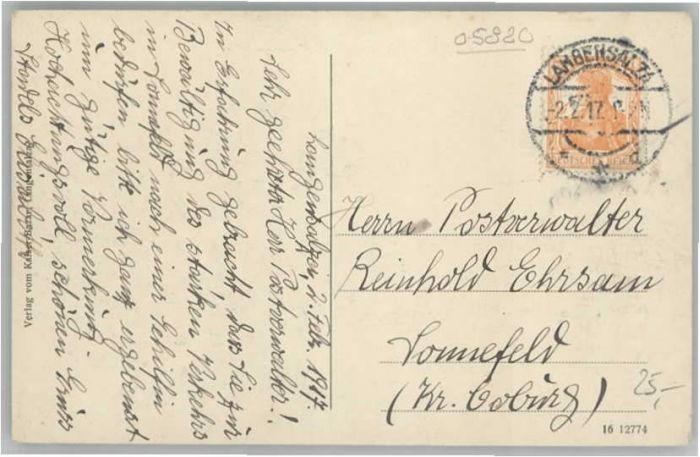 05820
LANGENSALZA
-2.2.17.
DEUTSCHES REICH
Langensalza, 2. Feb. 1917.
Sehr geehrter Herr Postverwalter!
In Erfahrung gebracht dass Sie zur
Bewältigung des starken Verkehrs
in Sonnefeld nach einer Gehilfin
bedürfen bitte ich ganz ergebenst
um gütige Vormerkung.
Hochachtungsvoll, schönen Gruss
Verlag vom
Herrn Postverwalter
Reinhold Ehrsam
Sonnefeld
(Kr. Coburg)
25,-
16 12774